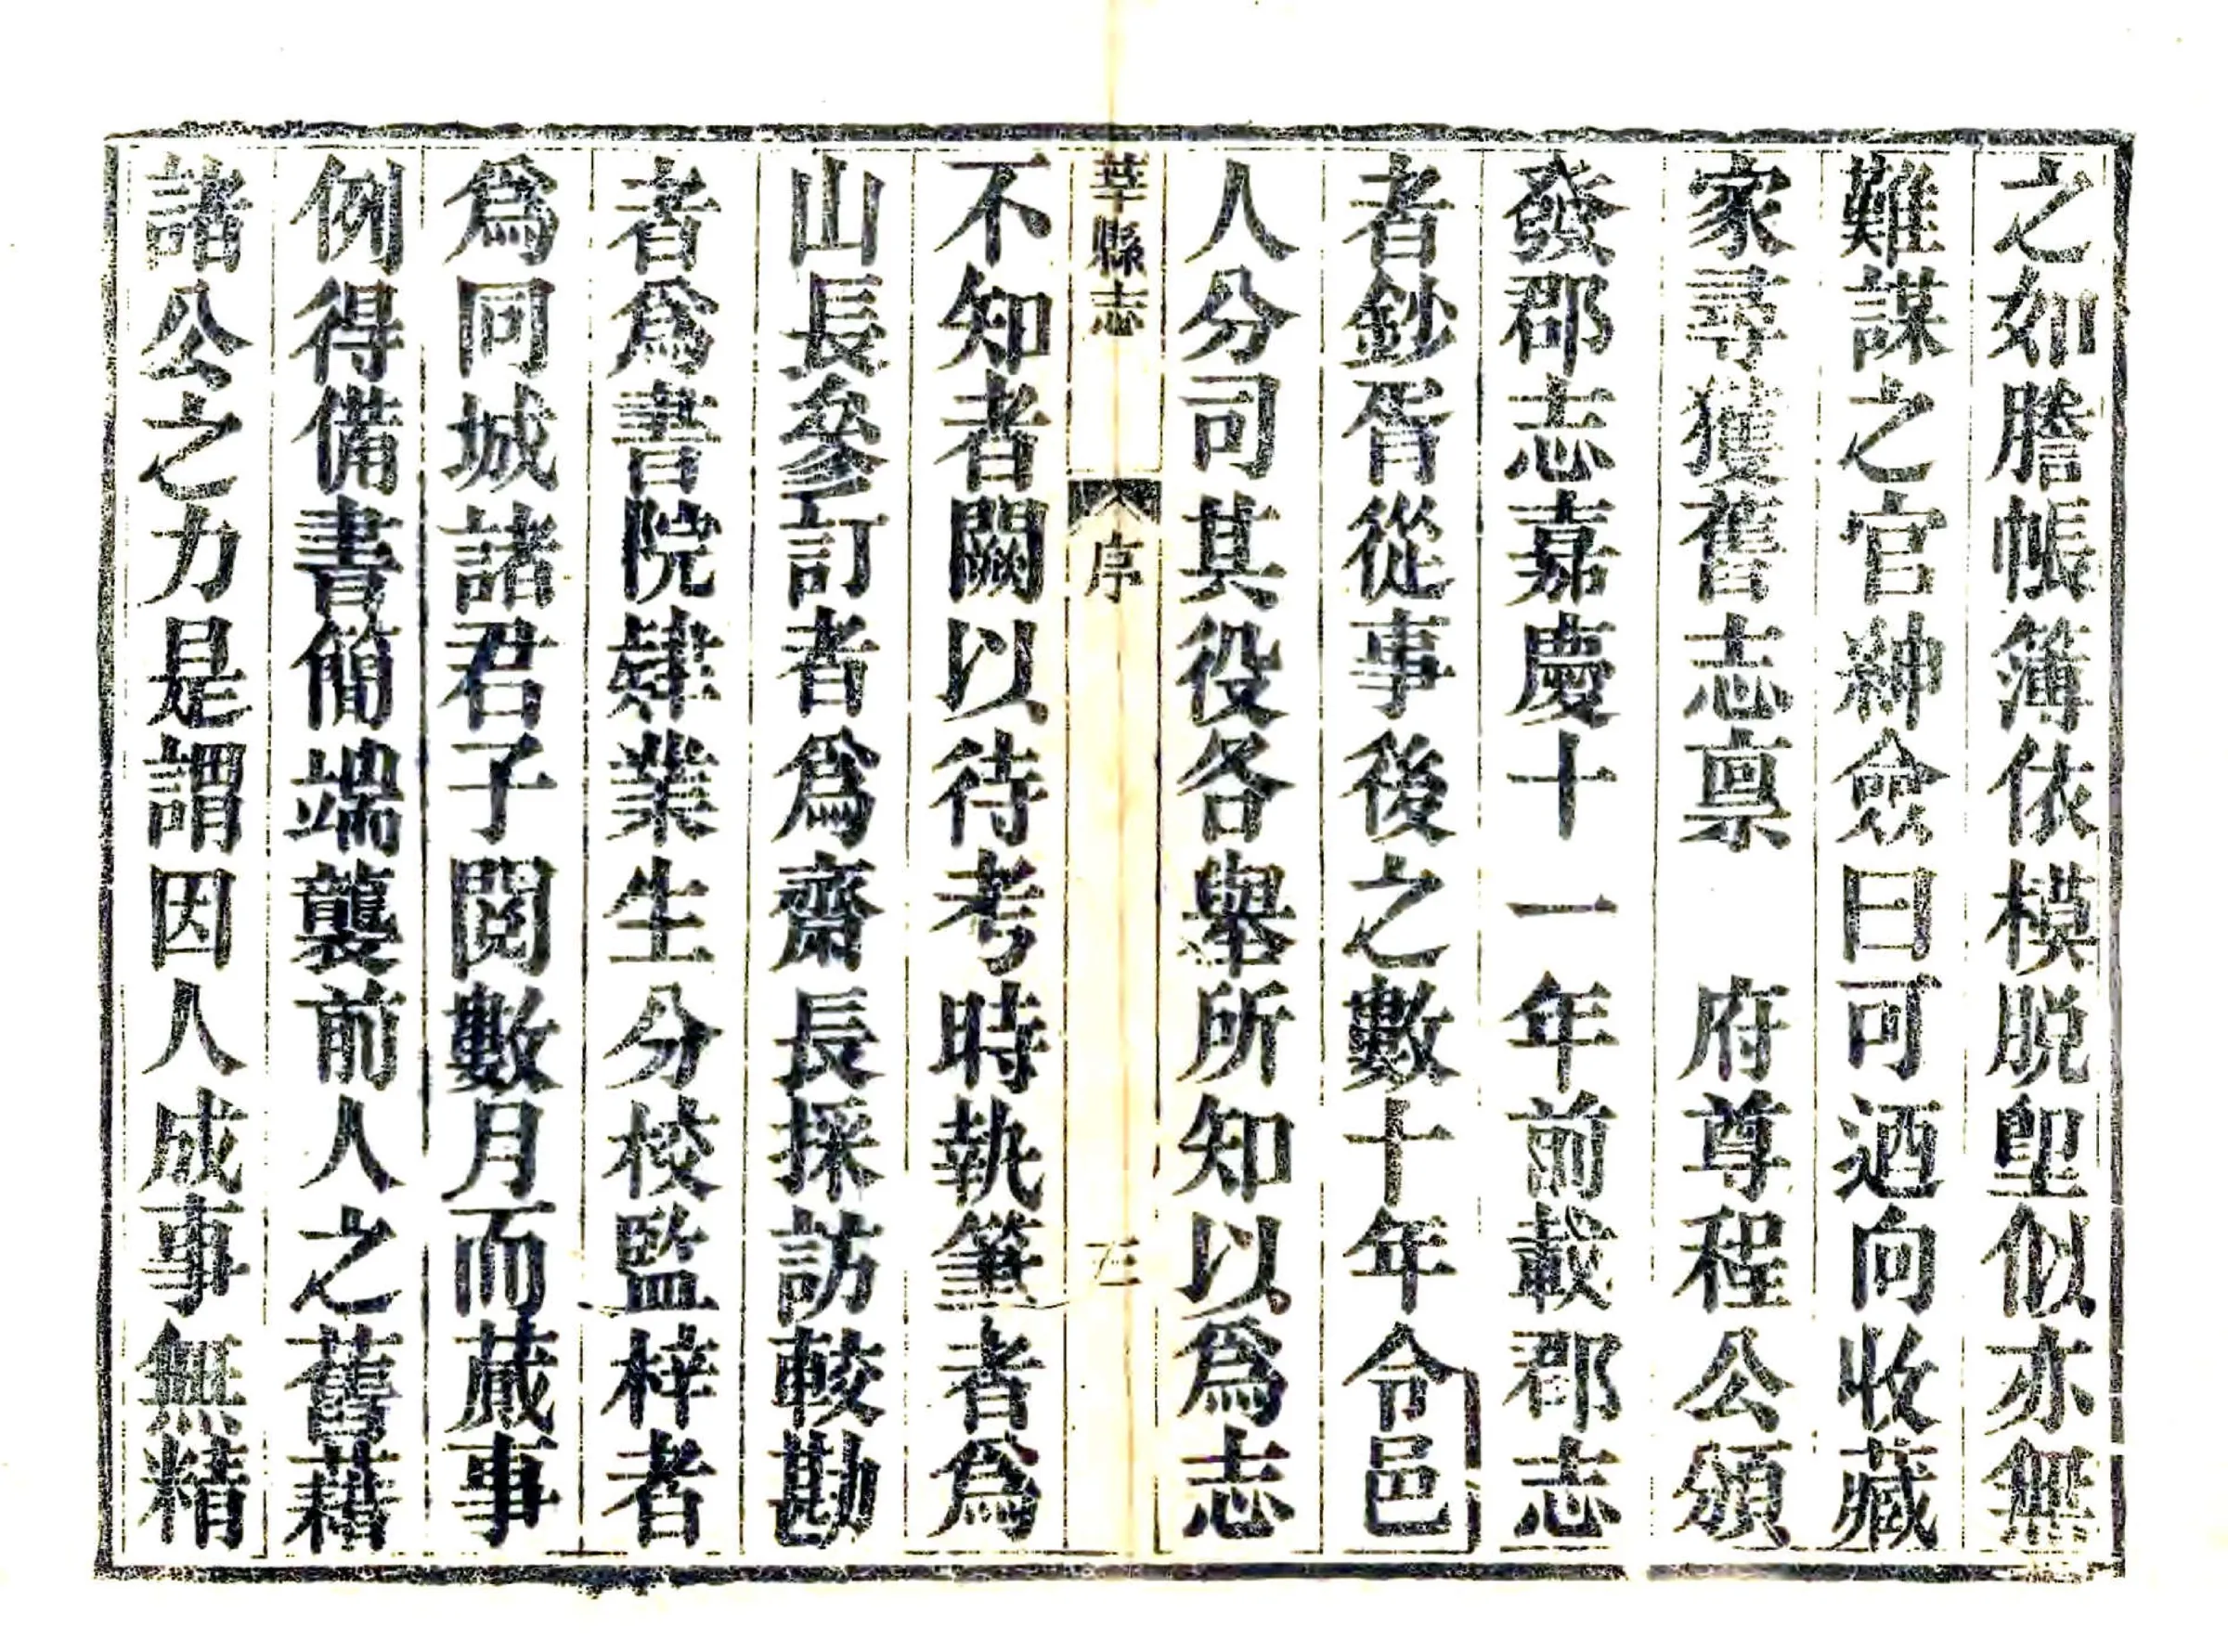 之如謄帳簿依模脱壆似亦無
難謀之官紳僉曰可迺向收藏
家尋獲舊志禀　府尊程公頒
發郡志嘉慶十一年前載郡志
者鈔胥從事後之數十年令邑
人分司其役各舉所知以爲志
莘縣志　序　三
不知者闕以待考時執筆者爲
山長參訂者爲齋長採訪較勘
者爲書院肄業生分校監梓者
爲同城諸君子閱數月而蕆事
例得備書簡端襲前人之舊藉
諸公之力是謂因人成事無精